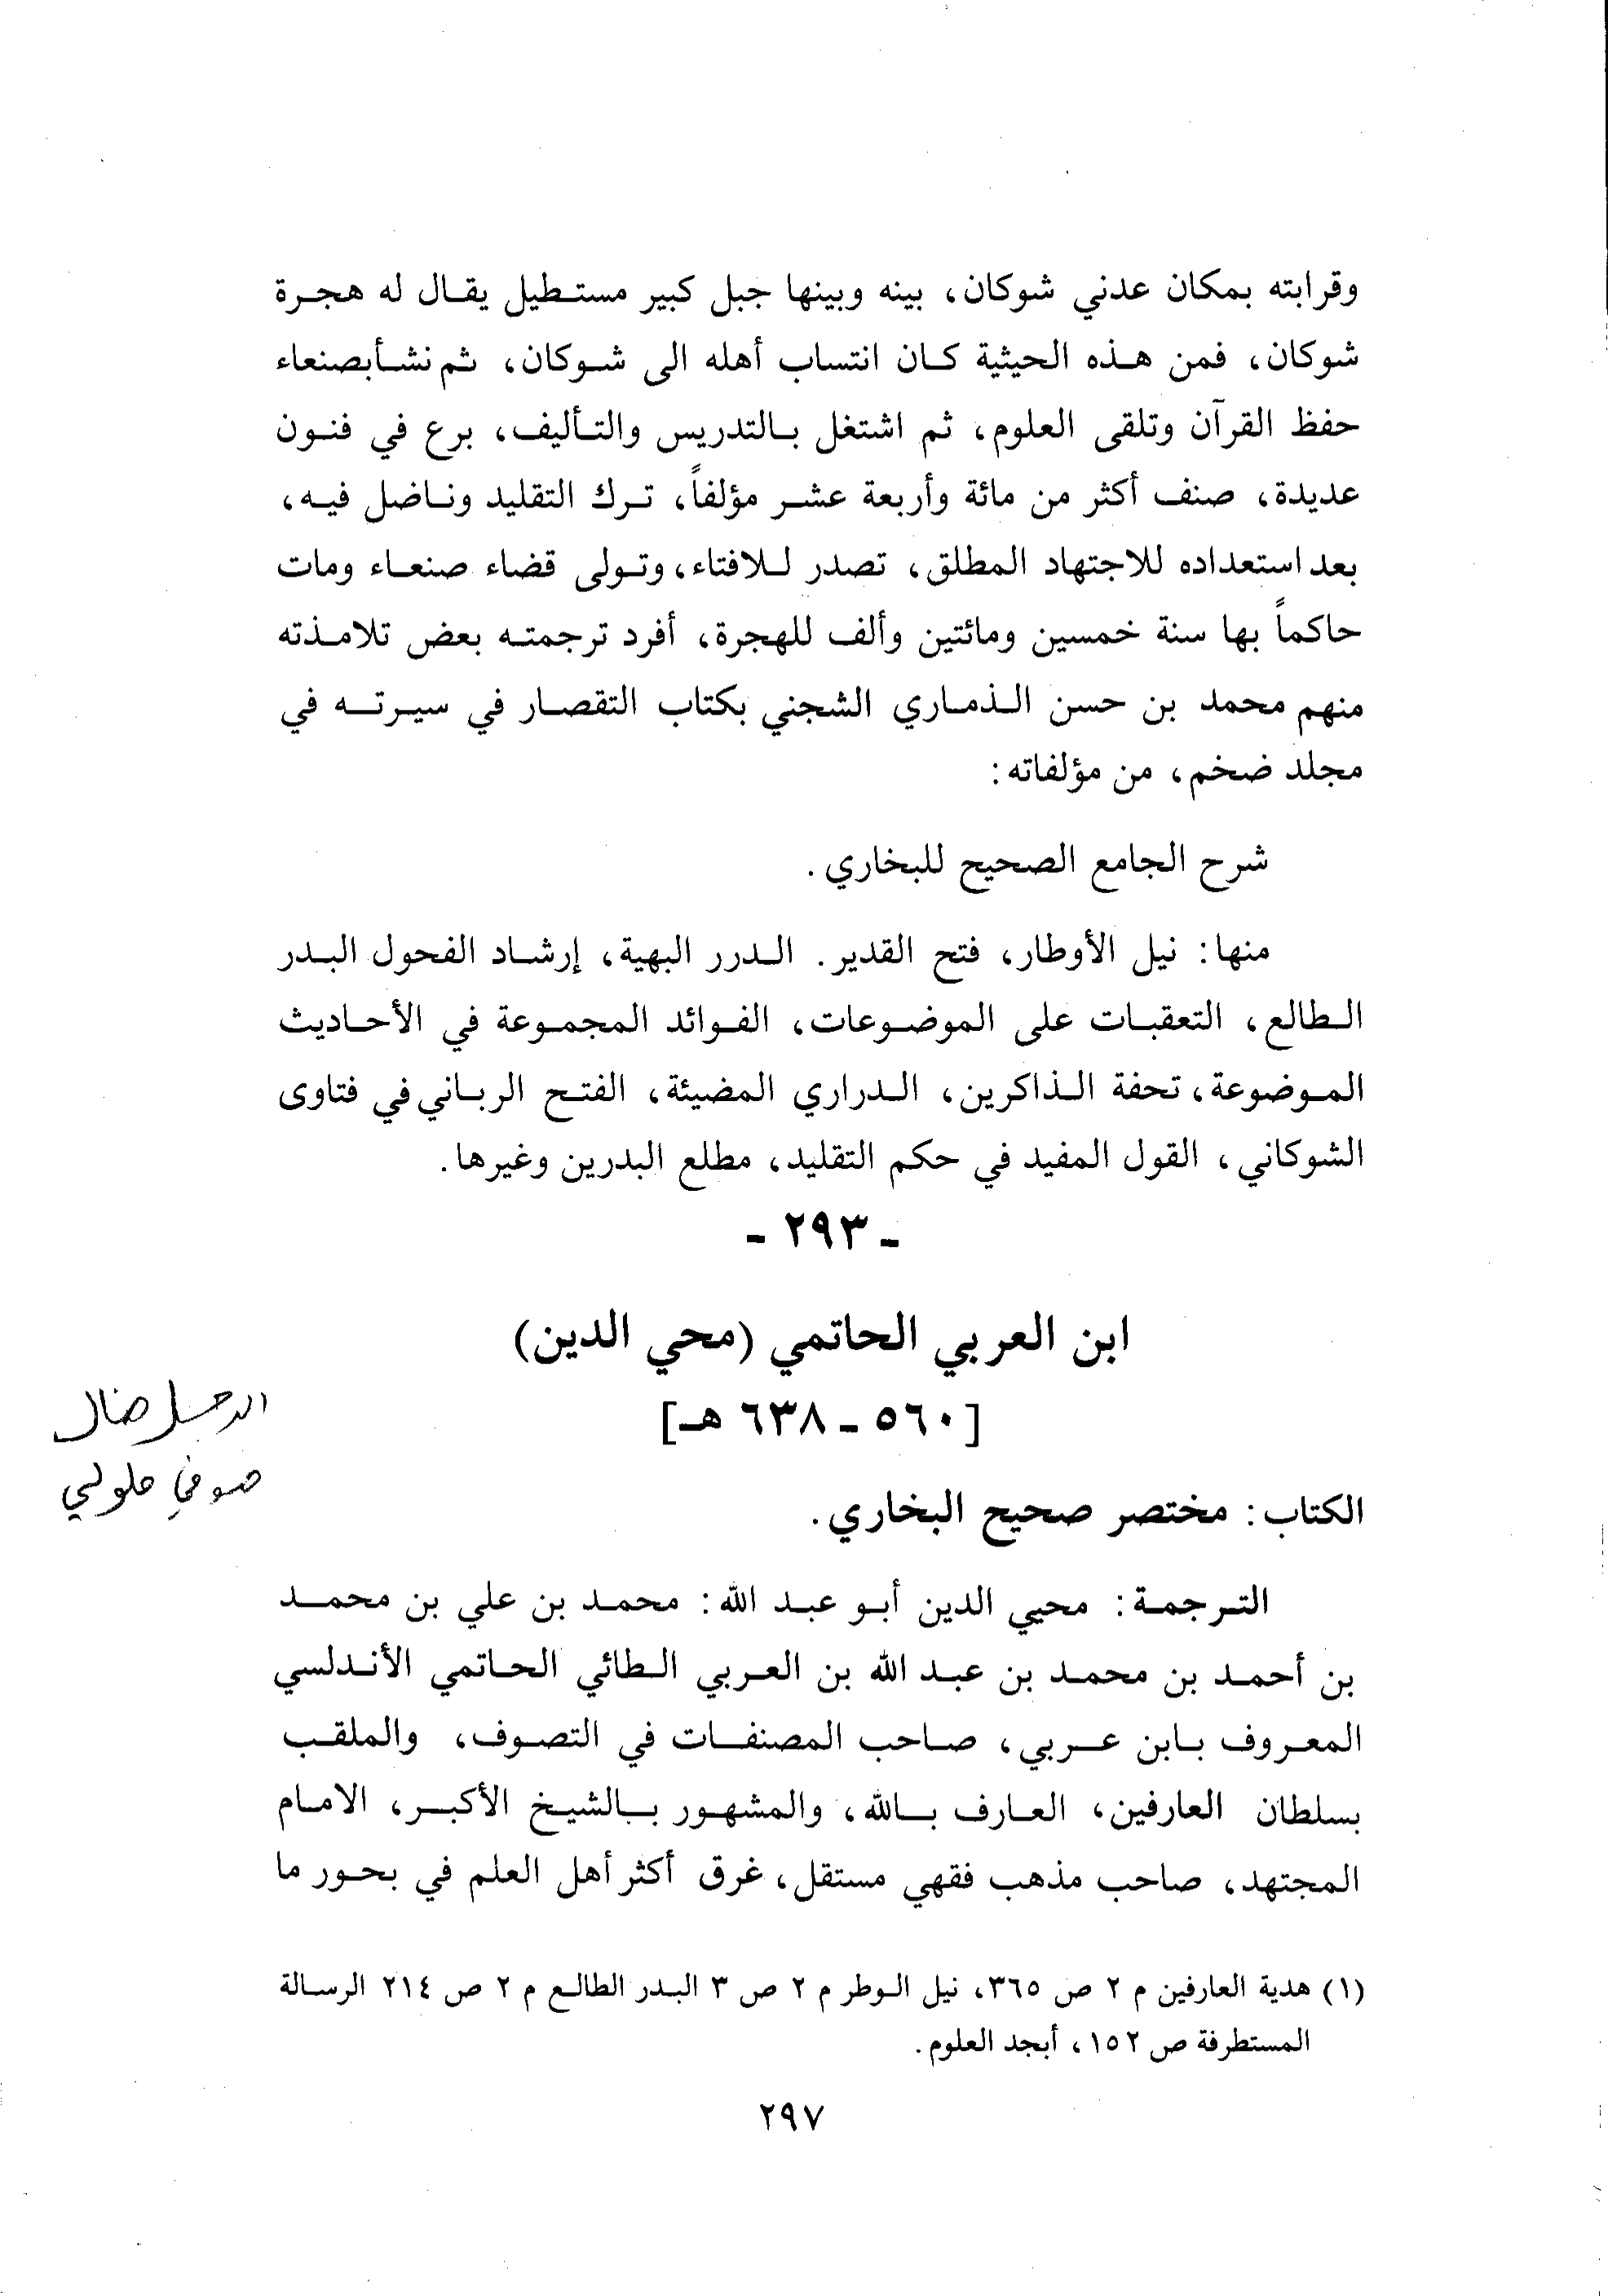 وقرابته بمكان عدني شوكان، بينه وبينها جبل كبير مستطيل يقال له هجرة
شوكان، فمن هذه الحيثية كان انتساب أهله الى شوكان، ثم نشأ بصنعاء
حفظ القرآن وتلقى العلوم، ثم اشتغل بالتدريس والتأليف، برع في فنون
عديدة، صنف أكثر من مائة وأربعة عشر مؤلفاً، ترك التقليد وناضل فيه،
بعد استعداده للاجتهاد المطلق، تصدر للافتاء، وتولى قضاء صنعاء ومات
حاكماً بها سنة خمسين ومائتين وألف للهجرة، أفرد ترجمته بعض تلامذته
منهم محمد بن حسن الذماري الشجني بكتاب التقصار في سيرته في
مجلد ضخم، من مؤلفاته:
شرح الجامع الصحيح للبخاري.
منها: نيل الأوطار، فتح القدير. الدرر البهية، إرشاد الفحول البدر
الطالع، التعقبات على الموضوعات، الفوائد المجموعة في الأحاديث
الموضوعة، تحفة الذاكرين، الدراري المضيئة، الفتح الرباني في فتاوى
الشوكاني، القول المفيد في حكم التقليد، مطلع البدرين وغيرها.
- ٢٩٣ -
ابن العربي الحاتمي (محي الدين)
[٥٦٠ - ٦٣٨ هـ]
الرجل ضال
صوفي حلولي
الكتاب: مختصر صحيح البخاري.
الترجمة: محيي الدين أبو عبد الله: محمد بن علي بن محمد
بن أحمد بن محمد بن عبد الله بن العربي الطائي الحاتمي الأندلسي
المعروف بابن عربي، صاحب المصنفات في التصوف، والملقب
بسلطان العارفين، العارف بالله، والمشهور بالشيخ الأكبر، الامام
المجتهد، صاحب مذهب فقهي مستقل، غرق أكثر أهل العلم في بحور ما
(١) هدية العارفين م ٢ ص ٣٦٥، نيل الوطر م ٢ ص ٣ البدر الطالع م ٢ ص ٢١٤ الرسالة
المستطرفة ص ١٥٢، أبجد العلوم.
٢٩٧